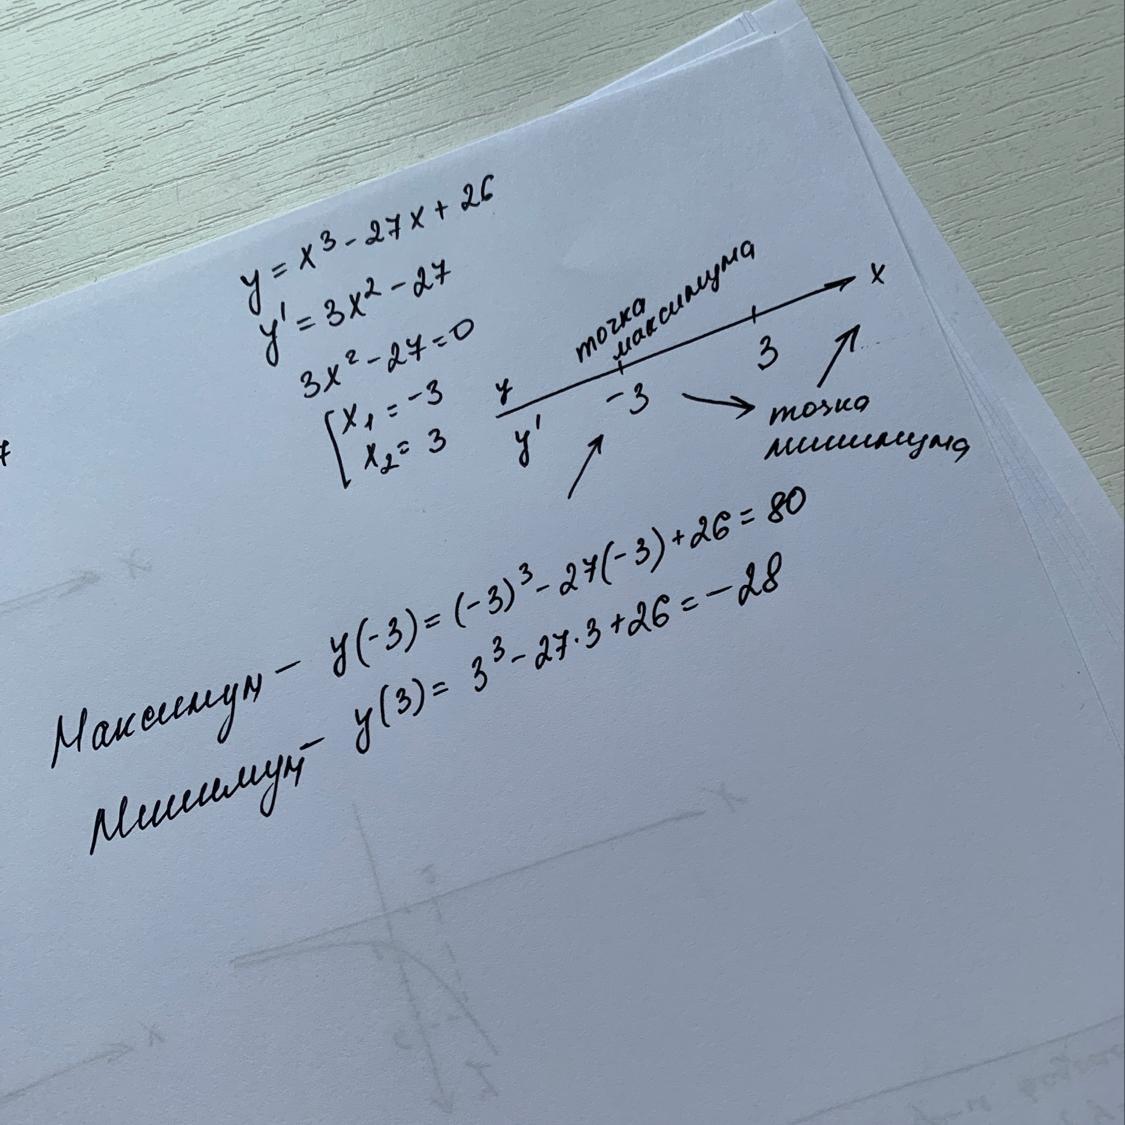 y = x³ - 27x + 26
y' = 3x² - 27
3x² - 27 = 0
x₁ = -3
x₂ = 3
точка
максимума
x
y
-3
3
y'
точка
минимума
Максимум - y(-3) = (-3)³ - 27(-3) + 26 = 80
Минимум - y(3) = 3³ - 27·3 + 26 = -28